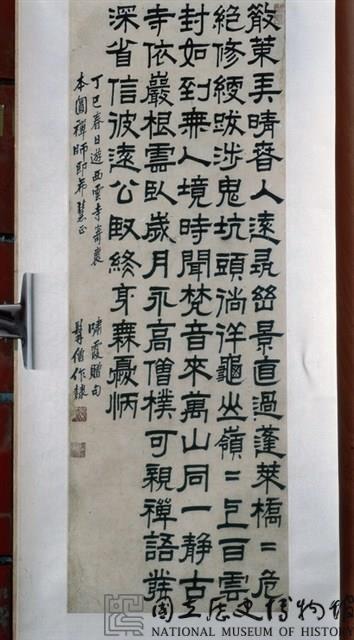 散策弄晴春人遠尋幽景直過蓬萊橋=危
絕修綆跋涉鬼坑頭徜徉龜山嶺=上白雲
封如到無人境時聞梵音來萬山同一靜古
寺依巖根雲臥歲月永高僧樸可親禪語發
深省信彼遠公馭終身無憂怲
丁巳春日遊西雲寺寄
嘯霞贈句
本圓禪師即希慧正
髯僧作隸
國立歷史博物館
NATIONAL MUSEUM OF HISTORY